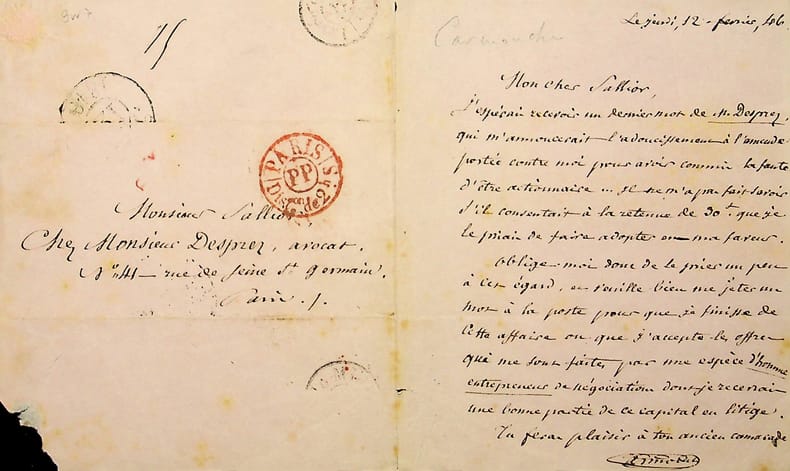 15
PARIS
PP
Monsieur Sallior
Chez Monsieur Desprez, avocat.
N° 41 — rue de Seine St Germain.
Paris.
Carmouche
Le jeudi, 12 - fevrier, 46
Mon cher Sallior,
J'espérais recevoir un dernier mot de M. Desprez,
qui m'annoncerait l'adoucissement à l'amende
portée contre moi pour avoir commis la faute
d'être actionnaire ... Il ne m'a pas fait savoir
s'il consentait à la retenue de 30 f. que je
le priais de faire adopter en ma faveur.
Oblige moi donc de le prier un peu
à cet égard, et veuille bien me jeter un
mot à la poste pour que je finisse de
cette affaire ou que j'accepte les offres
qui me sont faites par une espèce d'homme
entrepreneur de négociations dont je recevrais
une bonne partie de ce capital en litige.
Tu feras plaisir à ton ancien camarade